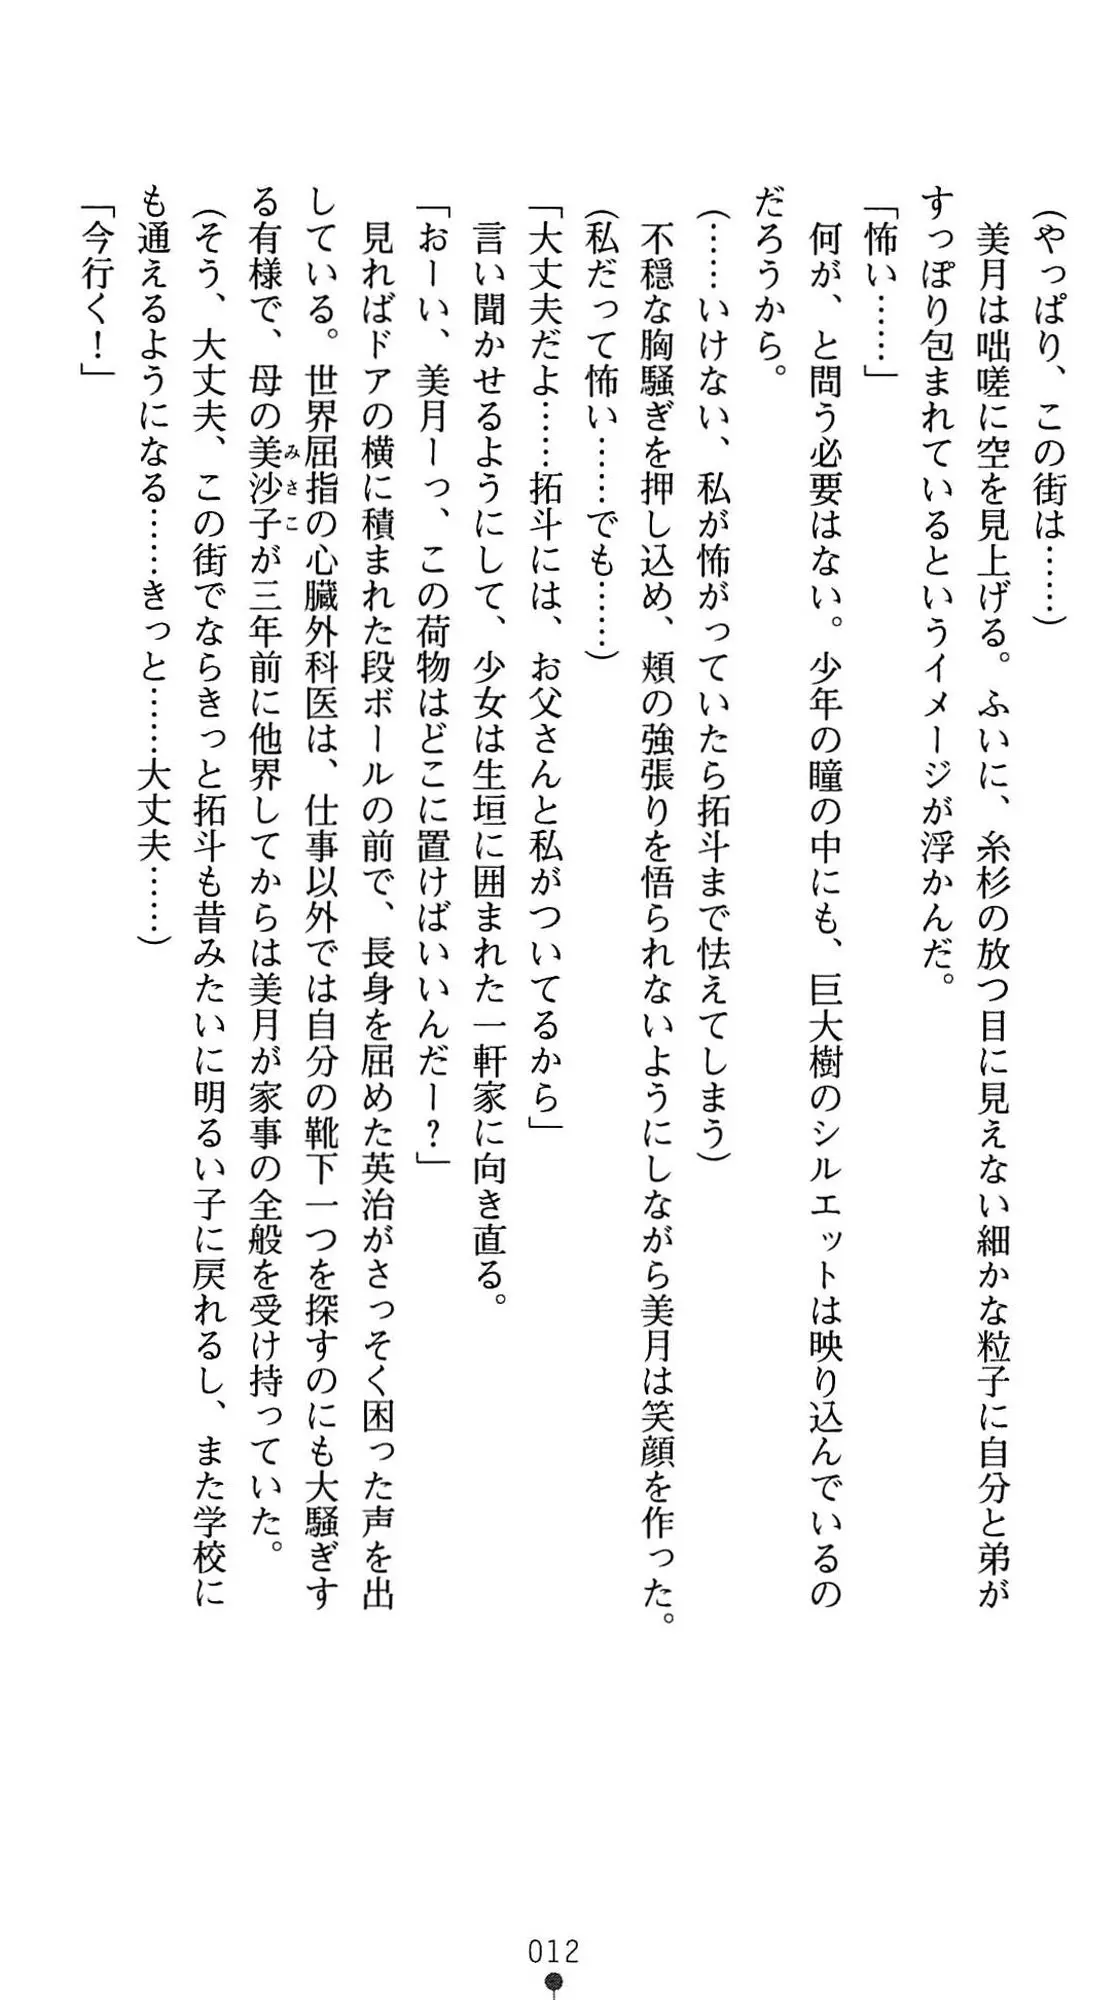 (やっぱり、この街は……)
美月は咄嗟に空を見上げる。ふいに、糸杉の放つ目に見えない細かな粒子に自分と弟が
すっぽり包まれているというイメージが浮かんだ。
「怖い……」
何が、と問う必要はない。少年の瞳の中にも、巨大樹のシルエットは映り込んでいるの
だろうから。
(……いけない、私が怖がっていたら拓斗まで怯えてしまう)
不穏な胸騒ぎを押し込め、頬の強張りを悟られないようにしながら美月は笑顔を作った。
(私だって怖い……でも……)
「大丈夫だよ……拓斗には、お父さんと私がついてるから」
言い聞かせるようにして、少女は生垣に囲まれた一軒家に向き直る。
「おーい、美月ーっ、この荷物はどこに置けばいいんだー?」
見ればドアの横に積まれた段ボールの前で、長身を屈めた英治がさっそく困った声を出
している。世界屈指の心臓外科医は、仕事以外では自分の靴下一つを探すのにも大騒ぎす
る有様で、母の美沙子が三年前に他界してからは美月が家事の全般を受け持っていた。
みさこ
(そう、大丈夫、この街でならきっと拓斗も昔みたいに明るい子に戻れるし、また学校に
も通えるようになる……きっと……大丈夫……)
「今行く!」
012